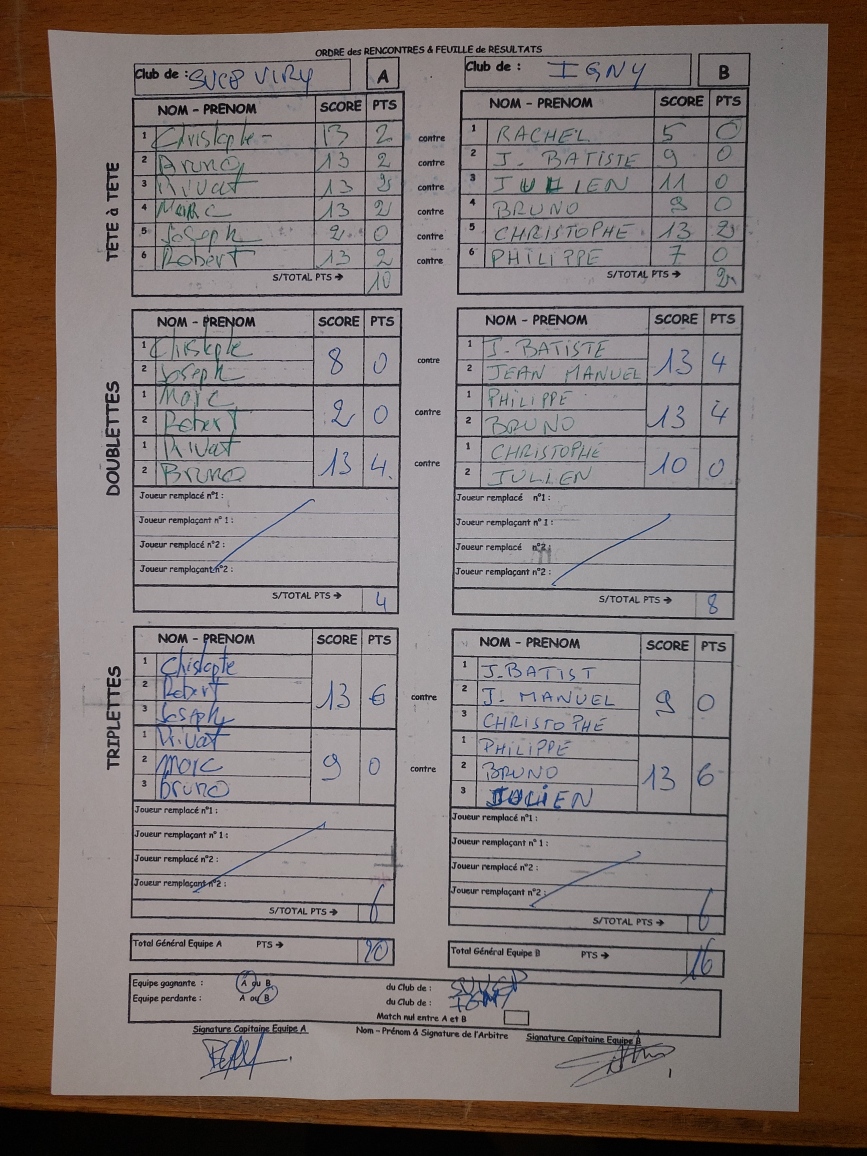 ORDRE des RENCONTRES & FEUILLE de RESULTATS
Club de : SUCP VIRY A Club de : IGNY B
NOM - PRENOM SCORE PTS NOM - PRENOM SCORE PTS
TÊTE à TÊTE
1 Christophe - 13 2 contre 1 RACHEL 5 0
2 Bruno 13 2 contre 2 J. BATISTE 9 0
3 Rivat 13 2 contre 3 JULIEN 11 0
4 Marc 13 2 contre 4 BRUNO 9 0
5 Joseph 2 0 contre 5 CHRISTOPHE 13 2
6 Robert 13 2 contre 6 PHILIPPE 7 0
S/TOTAL PTS → 10 S/TOTAL PTS → 2
NOM - PRENOM SCORE PTS NOM - PRENOM SCORE PTS
DOUBLETTES
1 Christophe 8 0 contre 1 J. BATISTE 13 4
2 Joseph 2 JEAN MANUEL
1 Marc 2 0 contre 1 PHILIPPE 13 4
2 Robert 2 BRUNO
1 Rivat 13 4 contre 1 CHRISTOPHE 10 0
2 Bruno 2 JULIEN
Joueur remplacé n°1 : Joueur remplacé n°1 :
Joueur remplaçant n° 1 : Joueur remplaçant n° 1 :
Joueur remplacé n°2 : Joueur remplacé n°2 :
Joueur remplaçant n°2 : Joueur remplaçant n°2 :
S/TOTAL PTS → 4 S/TOTAL PTS → 8
NOM - PRENOM SCORE PTS NOM - PRENOM SCORE PTS
TRIPLETTES
1 Christophe 13 6 contre 1 J.BATIST 9 0
2 Robert 2 J. MANUEL
3 Joseph 3 CHRISTOPHE
1 Rivat 9 0 contre 1 PHILIPPE 13 6
2 Marc 2 BRUNO
3 bruno 3 JULIEN
Joueur remplacé n°1 : Joueur remplacé n°1 :
Joueur remplaçant n° 1 : Joueur remplaçant n° 1 :
Joueur remplacé n°2 : Joueur remplacé n°2 :
Joueur remplaçant n°2 : Joueur remplaçant n°2 :
S/TOTAL PTS → 6 S/TOTAL PTS → 6
Total Général Equipe A PTS → 20 Total Général Equipe B PTS → 16
Equipe gagnante : A ou B du Club de :
Equipe perdante : A ou B du Club de : IGNY
Match nul entre A et B
Signature Capitaine Equipe A Nom - Prénom & Signature de l'Arbitre Signature Capitaine Equipe B
1